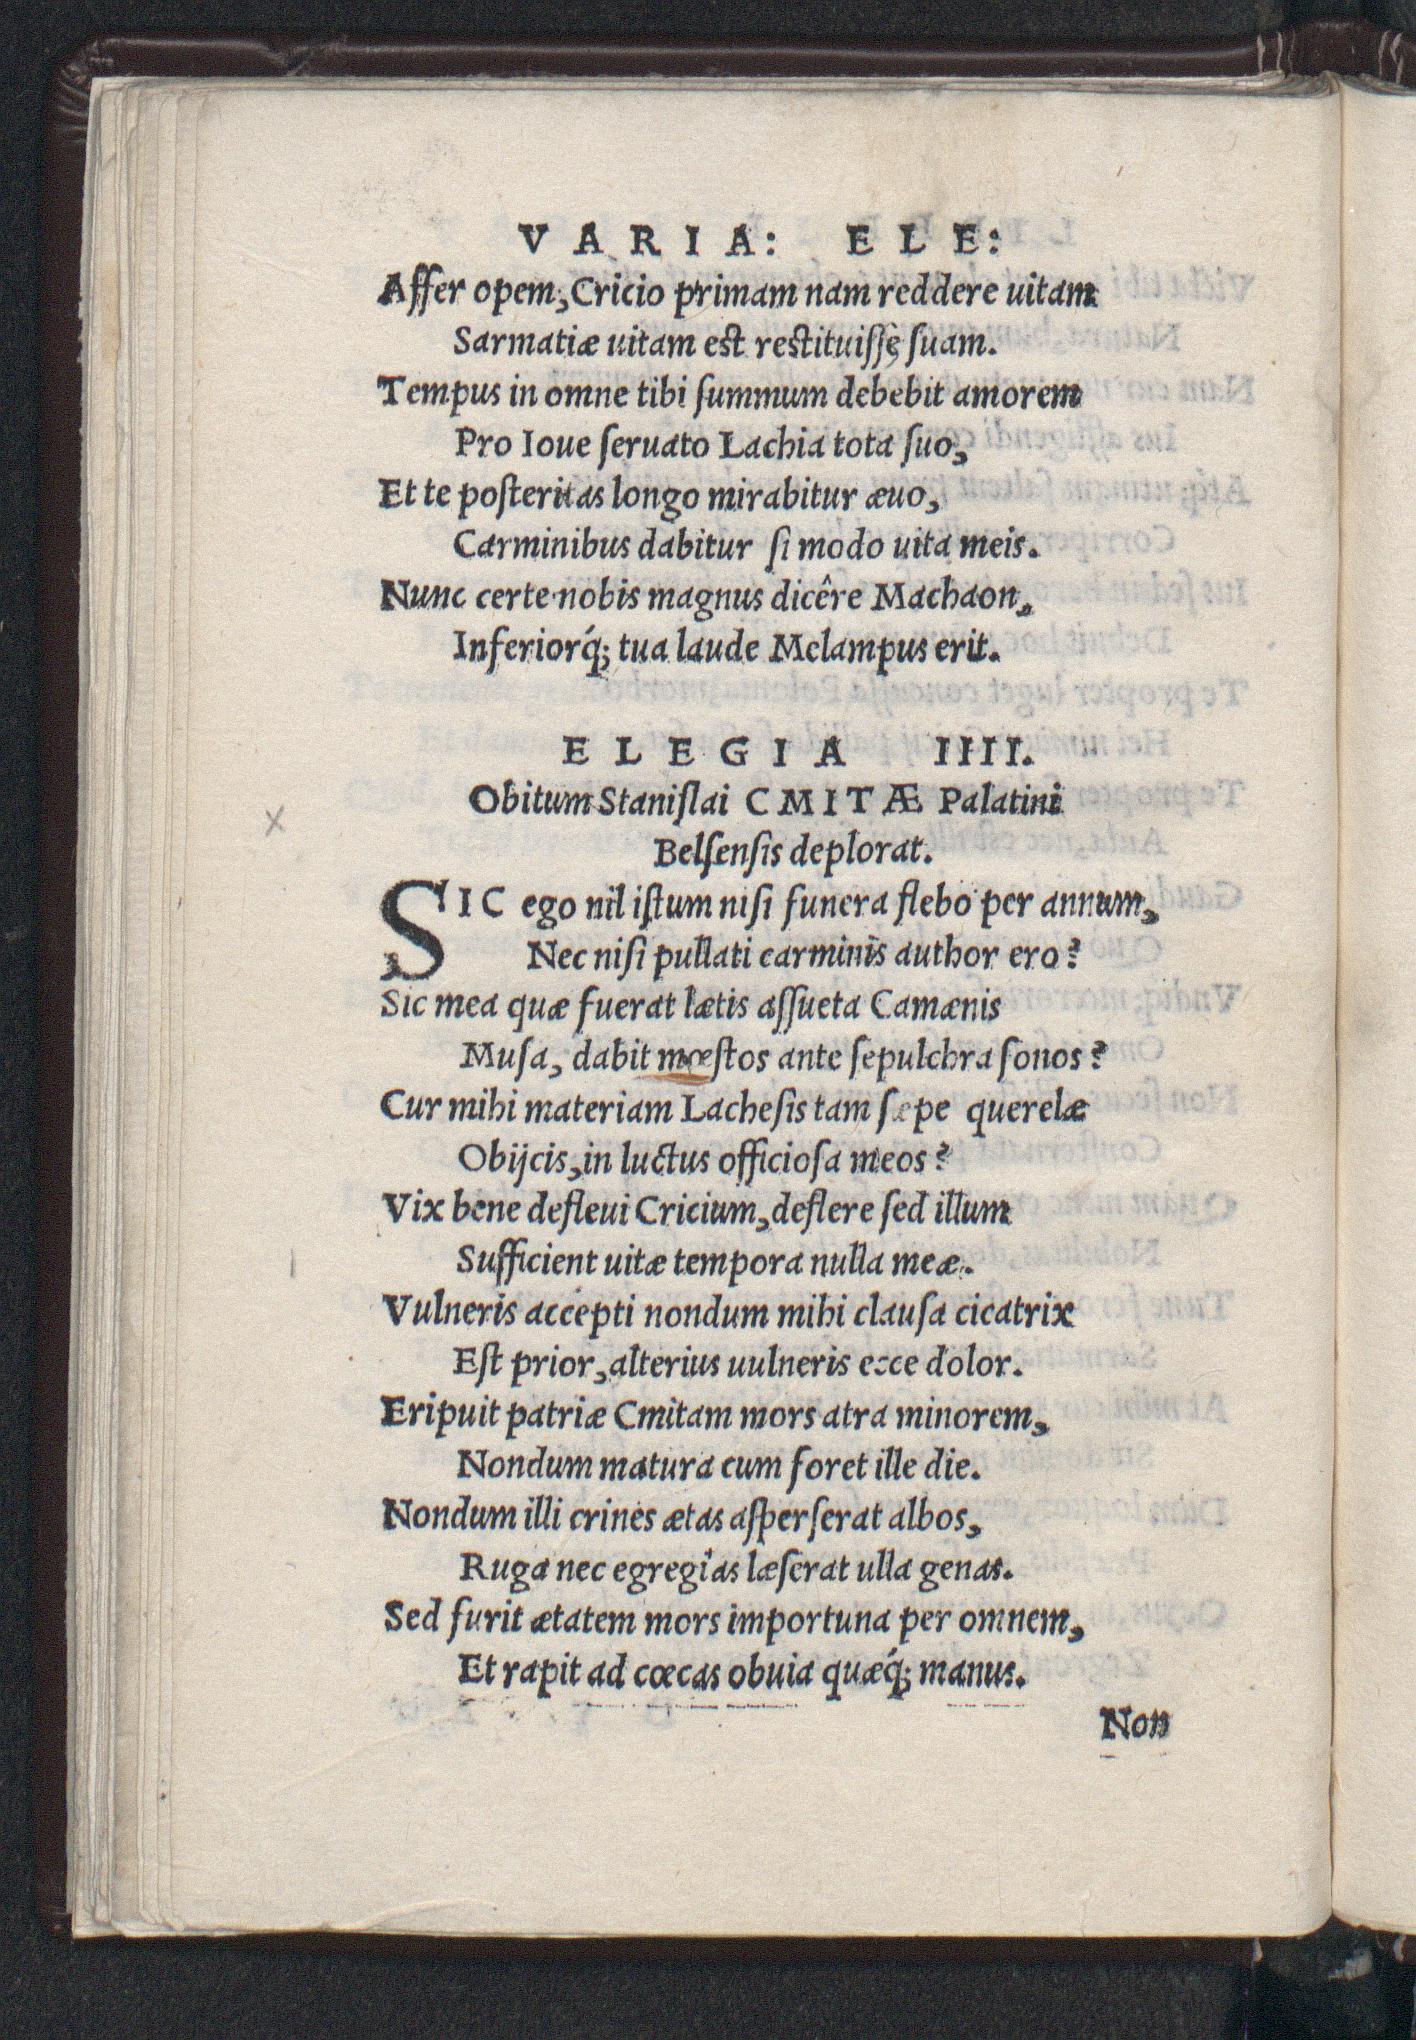 VARIA: ELE:
Affer opem, Cricio primam nam reddere uitam
Sarmatiæ uitam est restituiſſe ſuam.
Tempus in omne tibi ſummum debebit amorem
Pro Ioue ſeruato Lachia tota ſuo,
Et te poſteritas longo mirabitur æuo,
Carminibus dabitur ſi modo uita meis.
Nunc certe nobis magnus dicêre Machaon,
Inferiorq́; tua laude Melampus erit.
ELEGIA IIII.
Obitum Staniſlai CMITÆ Palatini
Belſenſis deplorat.
SIC ego nil iſtum niſi funera flebo per annum,
Nec niſi pullati carminis author ero?
Sic mea quæ fuerat lætis aſſueta Camænis
Muſa, dabit mœſtos ante ſepulchra ſonos?
Cur mihi materiam Lacheſis tam ſæpe querelæ
Obijcis, in luctus officioſa meos?
Vix bene defleui Cricium, deflere ſed illum
Sufficient uitæ tempora nulla meæ.
Vulneris accepti nondum mihi clauſa cicatrix
Eſt prior, alterius uulneris ecce dolor.
Eripuit patriæ Cmitam mors atra minorem,
Nondum matura cum foret ille die.
Nondum illi crines ætas aſperſerat albos,
Ruga nec egregias læſerat ulla genas.
Sed furit ætatem mors importuna per omnem,
Et rapit ad cœcas obuia quæq́; manus.
Non